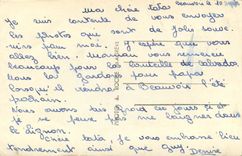 Ma chère tata
je me contente de vous envoyer
les photos que sont de jolis souve-
nirs pour moi. J'espère que vous
allez bien. Maman vous remercie
beaucoup pour les bouteilles de
nous les gardons pour papa
lorsqu'il viendra à Beauvoir l'été
prochain.
nous avons très froid ce jours ci et
je ne peux pas me baigner dans
le Lignon.
chère tata je vous embrasse bien
tendrement ainsi que Guy. Denise